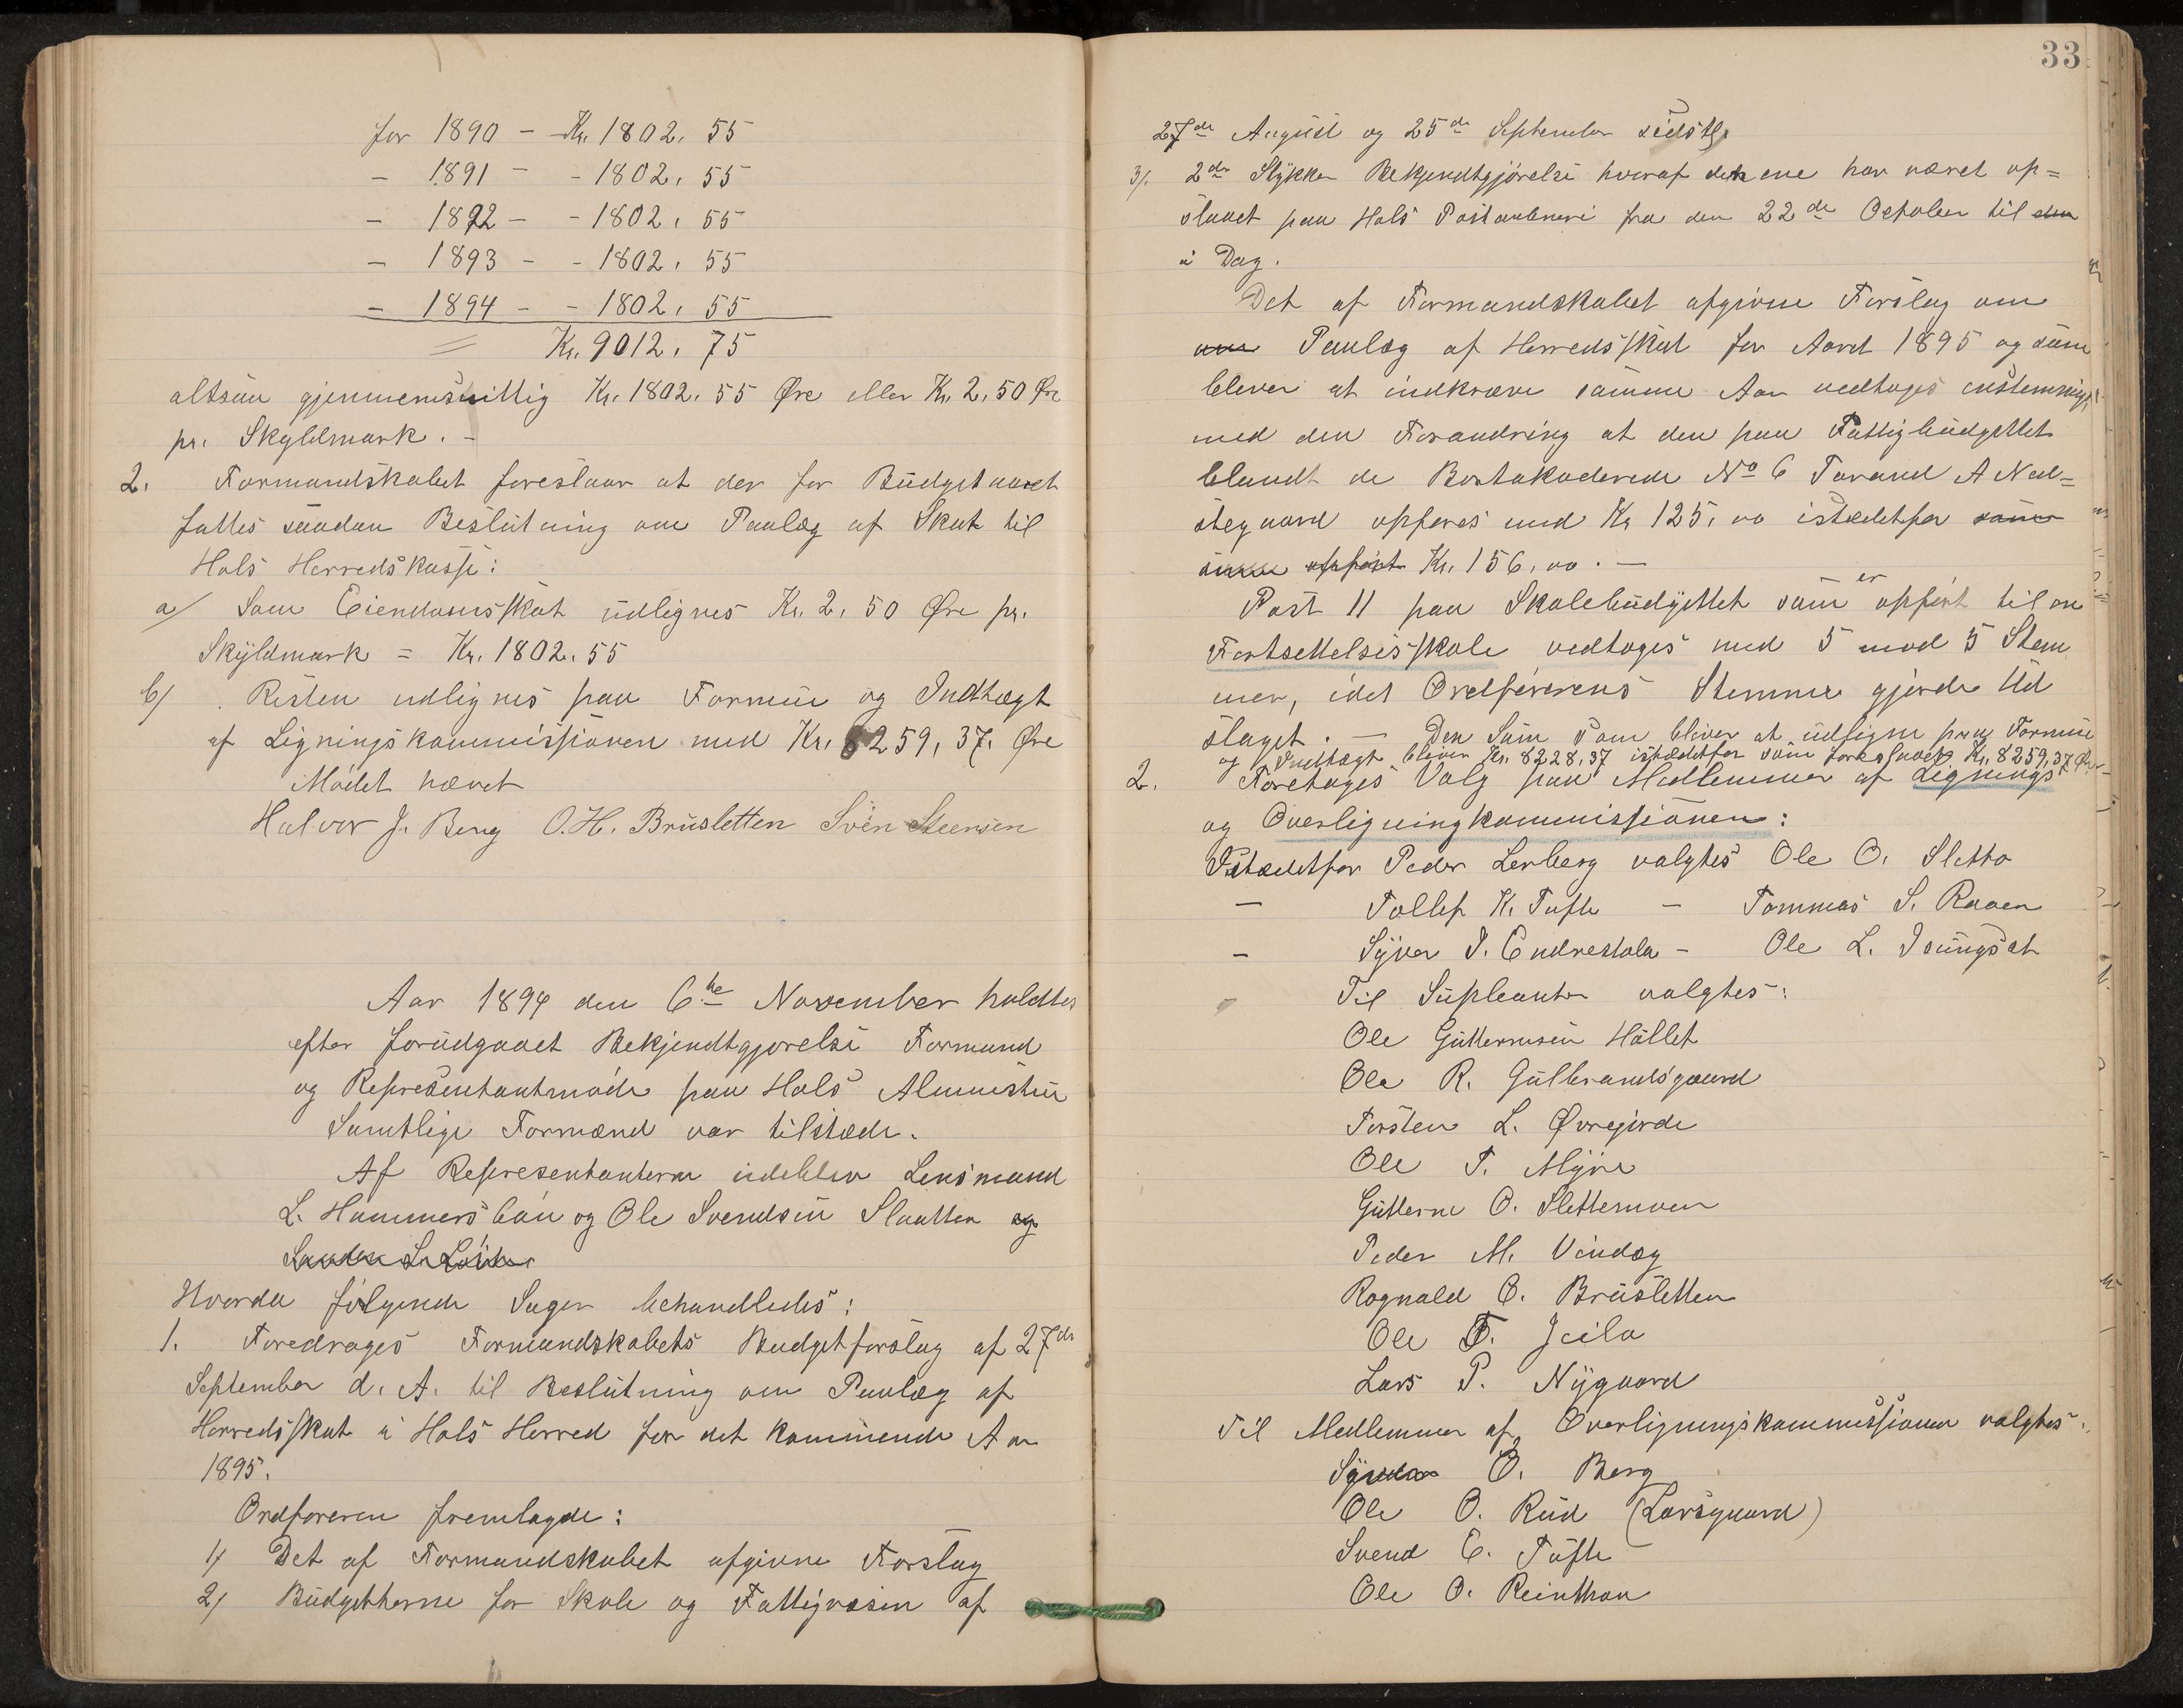 for 1890 - Kr. 1802. 55
- 1891 - - 1802. 55
- 1892 - - 1802. 55
- 1893 - - 1802. 55
- 1894 - - 1802. 55
Kr. 9012. 75
altsaa gjennemsnittig Kr. 1802. 55 Øre eller Kr. 2.50 Øre
pr. Skyldmark. -
2. Formandskabet foreslaar at der for Budgetaaret
fattes saadan Beslutning om Paalæg af Skat til
Hols Herredskasse:
a/ Som Eiendomsskat udlignes Kr. 2. 50 Øre pr.
Skyldmark = Kr. 1802. 55
b/ Resten udlignes paa Formue og Indtægt
af Ligningskommissionen med Kr. 8259, 37. Øre
Mødet hævet
Halvor J. Berg O. H. Brusletten Svén Steensen
Aar 1894 den 6te November holdtes
efter forudgaaet Bekjendtgjørelse Formand
og Representantmøde paa Hols Almustue
Samtlige Formænd var tilstæde.
Af Representanterne udeblev Lensmand
L. Hammersbøen og Ole Svendsen Slaatten og
Hvorda følgende Sager behandledes:
1. Foredrages Formandskabets Budgetforslag af 27de
September d. A. til Beslutning om Paalæg af
Herredsskat i Hols Herred for det kommende Aar
1895.
Ordføreren fremlagde:
1/ Det af Formandskabet afgivne Forslag
2/ Budgetterne for Skole og Fattigvæsen af
33
27de August og 25de September sidstl.
3/. 2de Stykker Bekjendtgjørelse hvoraf den ene har været op=
slaaet paa Hols Postaabneri fra den 22de October til den
i Dag.
Det af Formandskabet afgivne Forslag om
om Paalæg af Herredsskat for Aaret 1895 og som
bliver at indkræve samme Aar vedtoges enstemmig
med den Forandring at den paa Fattigbudgettet
blandt de Bortakoderede No 6 Tarand A Ned=
stegaard opføres med Kr 125. oo istedetfor som
opført Kr. 156, oo. -
Post 11 paa Skolebudgettet som er opført til en
Fortsettelsesskole vedtoges med 5 mod 5 Stem
mer, idet Ordførerens Stemme gjorde Ud
slaget. - Den Sum som bliver at udligne paa Formue
og Indtægt bliver Kr. 8228, 37 istædetfor som foreslaaet Kr. 8259,37 Øre
2. Foretoges Valg paa Medlemmer af Lignings
og Overligningkommissionen:
Istædetfor Peder Lerberg valgtes Ole O. Sletto
- Tollef K. Tufte - Tommas S. Raaen
- Syver P. Endrestola - Ole L. Isungset
Til Supleanter valgtes:
Ole Guttormsen Hallet
Ole R. Gulbrandsgaard
Torsten L. Øvregjerde
Ole T. Myre
Guttorm O. Slettemoen
Peder M. Vindeg
Rognald O. Brusletten
Ole T. Jeilo
Lars P. Nygaard
Til Medlemmer af Overligningskommissionen valgtes:
O. Berg
Ole O. Rud (Larsgaard)
Svend E. Tufte
Ole O. Reinthon